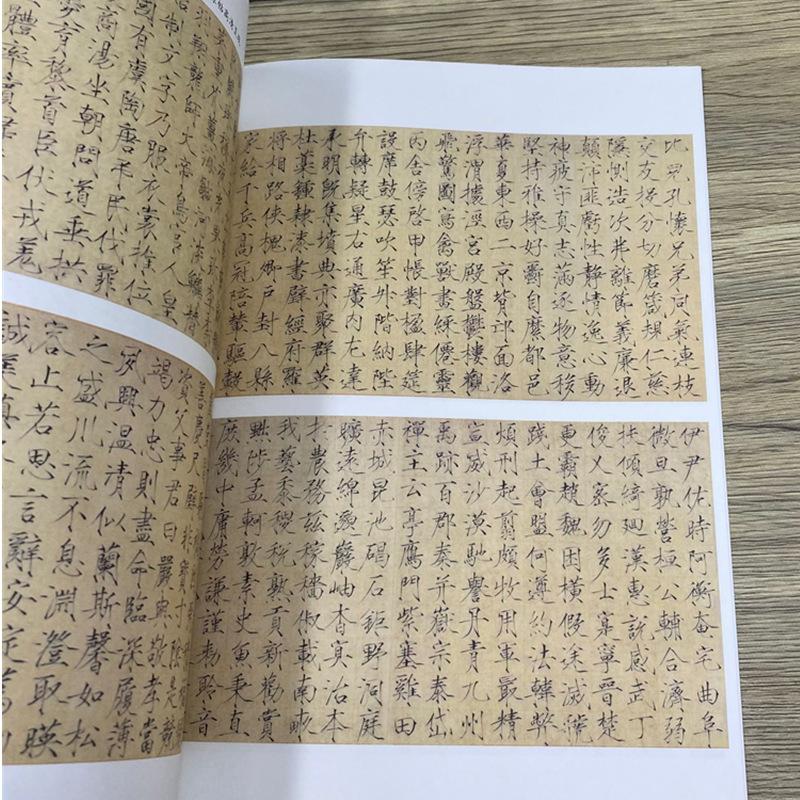 師火帝鳥官人皇
制文字乃服衣裳推位
國有虞陶唐弔民伐罪
商湯坐朝問道垂拱
育黎首臣伏戎羌
體率賓
資父事君曰嚴與敬孝當
竭力忠則盡命臨深履薄
夙興溫凊似蘭斯馨如松
之盛川流不息淵澄取暎
容止若思言辭安定篤
誠美慎
比兒孔懷兄弟同氣連枝
交友投分切磨箴規仁慈
隱惻造次弗離節義廉退
顛沛匪虧性靜情逸心動
神疲守真志滿逐物意移
堅持雅操好爵自縻都邑
華夏東西二京背邙面洛
浮渭據涇宮殿盤鬱樓觀
飛驚圖寫禽獸畫綵僊靈
丙舍傍啓甲帳對楹肆筵
設席鼓瑟吹笙升階納陛
弁轉疑星右通廣內左達
承明既集墳典亦聚群英
杜藁鍾隸漆書壁經府羅
將相路俠槐卿戶封八縣
家給千兵高冠陪輦驅轂
伊尹佐時阿衡奄宅曲阜
微旦孰營桓公輔合濟弱
扶傾綺迴漢惠說感武丁
俊乂密勿多士寔寧晉楚
更霸趙魏困橫假途滅虢
踐土會盟何遵約法韓弊
煩刑起翦頗牧用軍最精
宣威沙漠馳譽丹青九州
禹跡百郡秦并嶽宗泰岱
禪主云亭鴈門紫塞雞田
赤城昆池碣石鉅野洞庭
曠遠綿邈巖岫杳冥治本
於農務茲稼穡俶載南畝
我藝黍稷稅熟貢新勸賞
黜陟孟軻敦素史魚秉直
庶幾中庸勞謙謹敕聆音